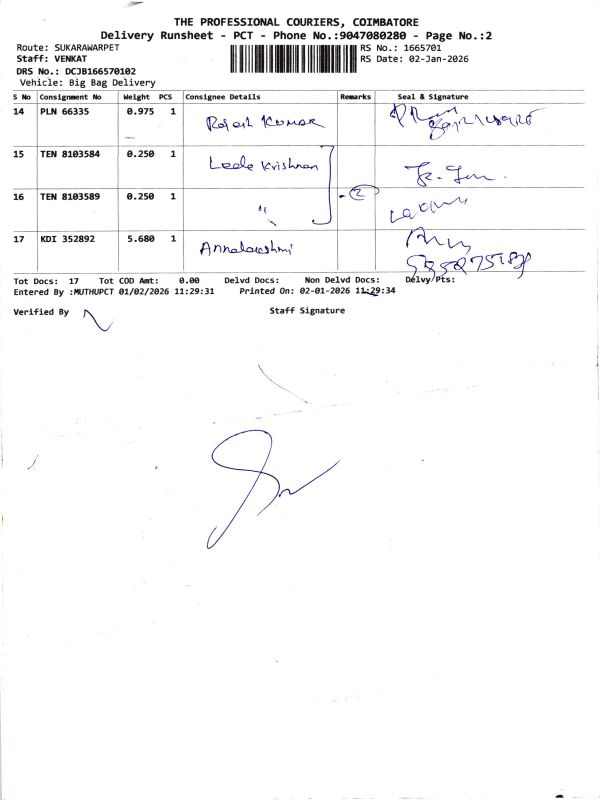 THE PROFESSIONAL COURIERS, COIMBATORE
Delivery Runsheet - PCT - Phone No.:9047080280 - Page No.:2
Route: SUKARAWARPET
Staff: VENKAT
DRS No.: DCJB166570102
Vehicle: Big Bag Delivery
RS No.: 1665701
RS Date: 02-Jan-2026
S No Consignment No Weight PCS Consignee Details Remarks Seal & Signature
14 PLN 66335 0.975 1 Rajesh Kumar
15 TEN 8103584 0.250 1 Leela Krishnan
16 TEN 8103589 0.250 1 " - 2
17 KDI 352892 5.680 1 Annalakshmi
Tot Docs: 17 Tot COD Amt: 0.00 Delvd Docs: Non Delvd Docs: Delvy/Pts:
Entered By :MUTHUPCT 01/02/2026 11:29:31 Printed On: 02-01-2026 11:29:34
Verified By Staff Signature